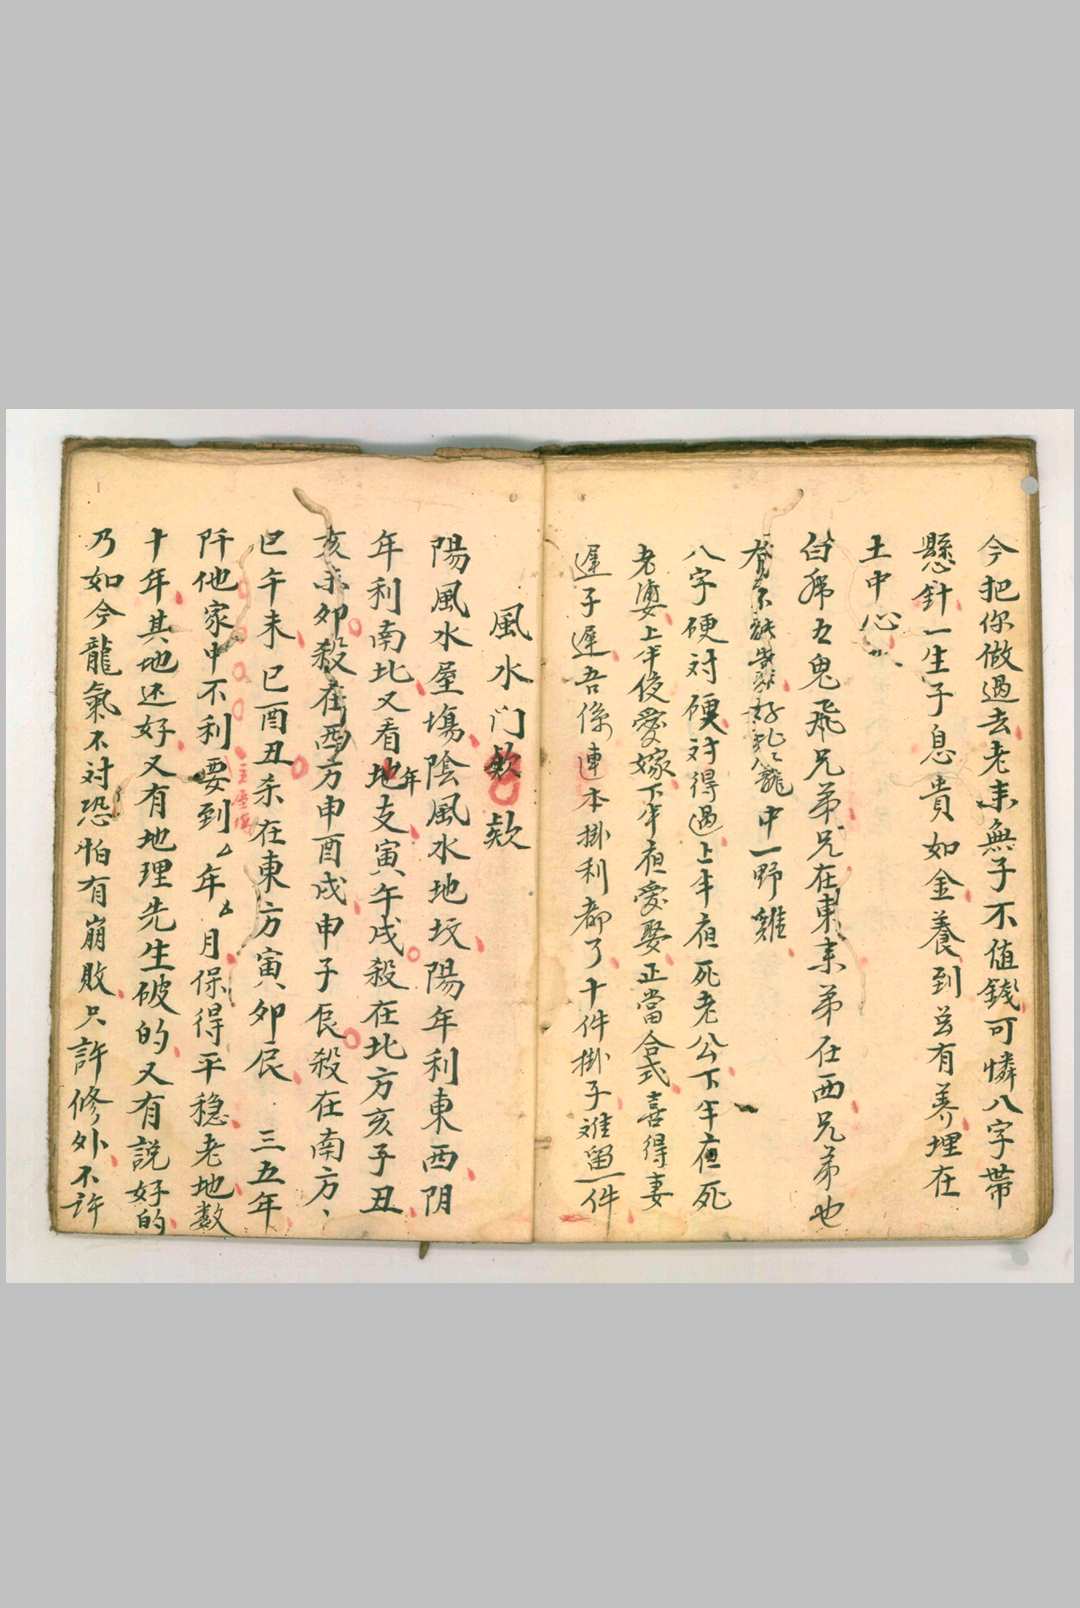 今把你做過去老來無子不值錢可憐八字帶
懸針一生子息貴如金養到岂有养埋在
土中心
白虎五鬼飛兄弟兄在東來弟在西兄弟也
中一野雞
八字硬対硬対得過上半夜死老公下半夜死
老婆上半夜愛嫁下半夜愛娶正當合式喜得妻
遲子遲吾係連本掛利都了十件掛子难留一件
風水门 欵
陽風水屋塲陰風水地坟陽年利東西阴
年利南北又看地支年寅午戌殺在北方亥子丑
亥未卯殺在西方申酉戌申子辰殺在南方
巳午未巳酉丑杀在東方寅卯辰 三五年
阡他家中不利要到厶年厶月保得平穏老地数
十年其地还好又有地理先生破的又有說好的
乃如今龍氣不対恐怕有崩敗只許修外不許